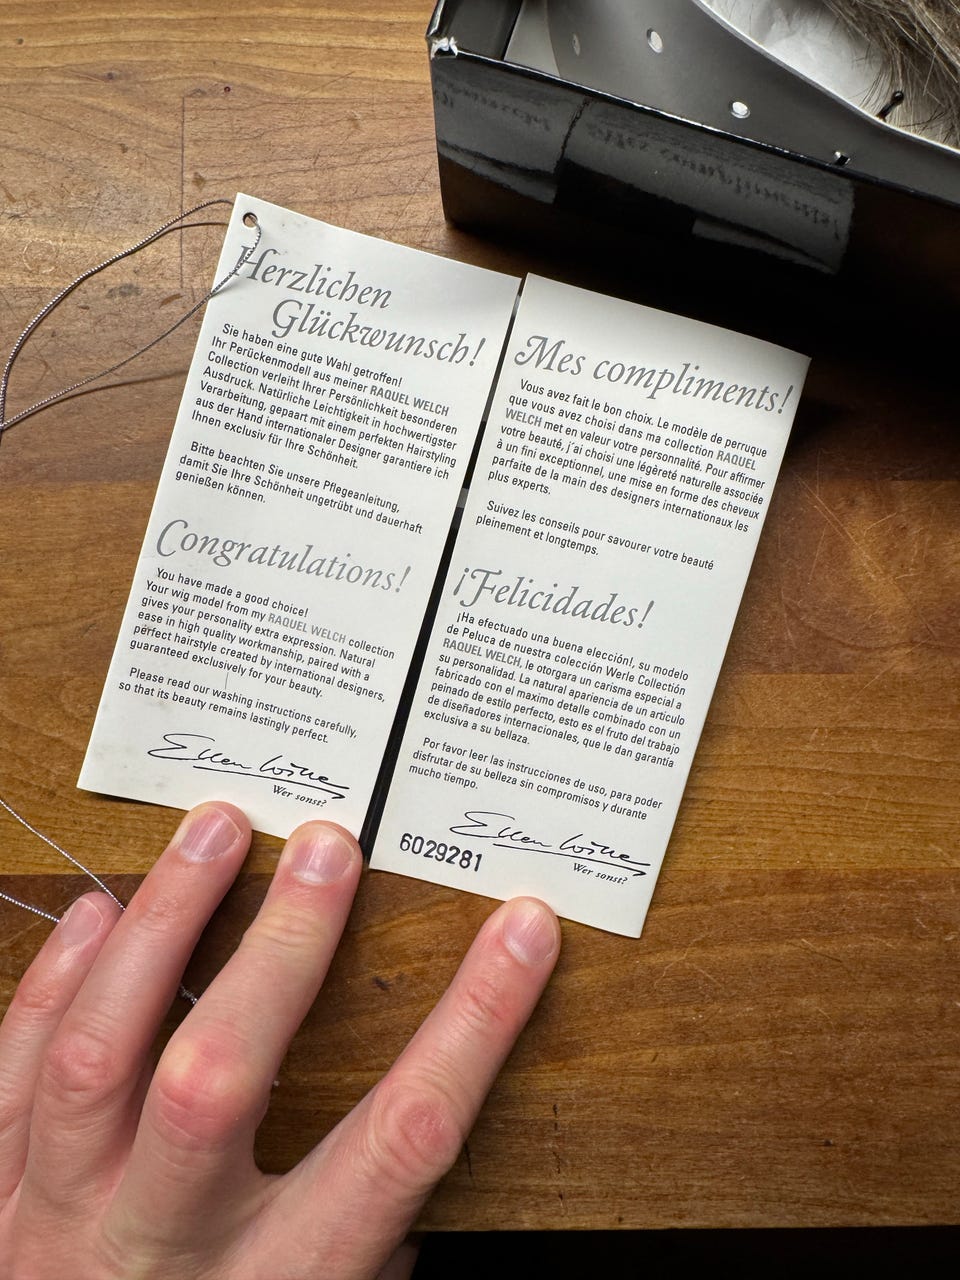 Herzlichen
Glückwunsch!
Sie haben eine gute Wahl getroffen!
Ihr Perückenmodell aus meiner RAQUEL WELCH
Collection verleiht Ihrer Persönlichkeit besonderen
Ausdruck. Natürliche Leichtigkeit in hochwertigster
Verarbeitung, gepaart mit einem perfekten Hairstyling
aus der Hand internationaler Designer garantiere ich
Ihnen exclusiv für Ihre Schönheit.
Bitte beachten Sie unsere Pflegeanleitung,
damit Sie Ihre Schönheit ungetrübt und dauerhaft
genießen können.
Congratulations!
You have made a good choice!
Your wig model from my RAQUEL WELCH collection
gives your personality extra expression. Natural
ease in high quality workmanship, paired with a
perfect hairstyle created by international designers,
guaranteed exclusively for your beauty.
Please read our washing instructions carefully,
so that its beauty remains lastingly perfect.
Ellen Wille
Wer sonst?
Mes compliments!
Vous avez fait le bon choix. Le modèle de perruque
que vous avez choisi dans ma collection RAQUEL
WELCH met en valeur votre personalité. Pour affirmer
votre beauté, j'ai choisi une légèreté naturelle associée
à un fini exceptionnel, une mise en forme des cheveux
parfaite de la main des designers internationaux les
plus experts.
Suivez les conseils pour savourer votre beauté
pleinement et longtemps.
¡Felicidades!
¡Ha efectuado una buena elección!, su modelo
de Peluca de nuestra colección Werle Collection
RAQUEL WELCH, le otorgara un carisma especial a
su personalidad. La natural apariencia de un articulo
fabricado con el maximo detalle combinado con un
peinado de estilo perfecto, esto es el fruto del trabajo
de diseñadores internacionales, que le dan garantia
exclusiva a su bellaza.
Por favor leer las instrucciones de uso, para poder
disfrutar de su belleza sin compromisos y durante
mucho tiempo.
Ellen Wille
Wer sonst?
6029281